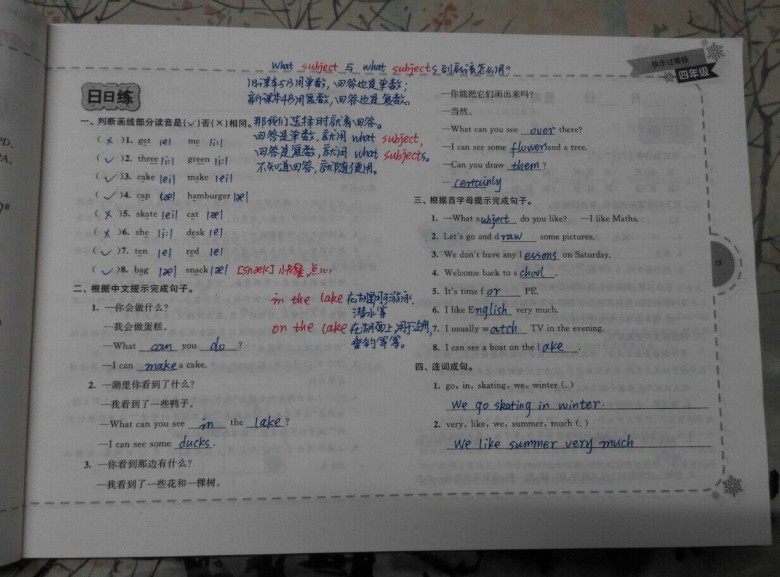 What subject 与 what subjects 到底该怎么用?
18课本5B用单数,回答也是单数;
新课本4B用复数,回答也是复数。
那我们选择时就看回答。
回答是单数,就用 what subject,
回答是复数,就用 what subjects。
不知道回答,就随便用。
快乐过寒假
四年级
日日练
一、判断画线部分读音是(✓)否(×)相同。
( × )1. get |e| me |i:|
( ✓ )2. three |i:| green |i:|
( ✓ )3. cake |ei| make |ei|
( ✓ )4. cap |æ| hamburger |æ|
( × )5. skate |ei| cat |æ|
( × )6. she |i:| desk |e|
( ✓ )7. ten |e| red |e|
( ✓ )8. bag |æ| snack |æ| [snæk] 小吃,点心
二、根据中文提示完成句子。
1. —你会做什么?
—我会做蛋糕。
—What can you do ?
—I can make a cake.
2. —湖里你看到了什么?
—我看到了一些鸭子。
—What can you see in the lake ?
—I can see some ducks .
3. —你看到那边有什么?
—我看到了一些花和一棵树。
in the lake 在湖里,用于游泳、
潜水等
on the lake 在湖面上,用于划船,
垂钓等等。
—你能把它们画出来吗?
—当然。
—What can you see over there?
—I can see some flowers and a tree.
—Can you draw them ?
— certainly
三、根据首字母提示完成句子。
1. —What subject do you like? —I like Maths.
2. Let's go and draw some pictures.
3. We don't have any lessons on Saturday.
4. Welcome back to school .
5. It's time for PE.
6. I like English very much.
7. I usually watch TV in the evening.
8. I can see a boat on the lake .
四、连词成句。
1. go, in, skating, we, winter (.)
We go skating in winter.
2. very, like, we, summer, much (.)
We like summer very much
15